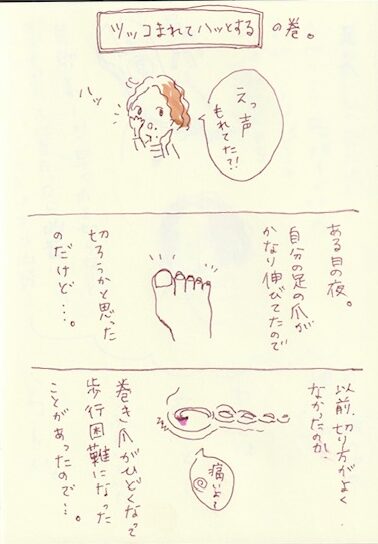 ツッコまれてハッとする の巻。
ハッ
えっ声
もれてた?!
ある日の夜。
自分の足の爪が
かなり伸びてたので
切ろうかと思った
のだけど…。
以前、切り方がよく
なかったのか、
痛いよ〜
巻き爪がひどくなって
歩行困難になった
ことがあったので…。